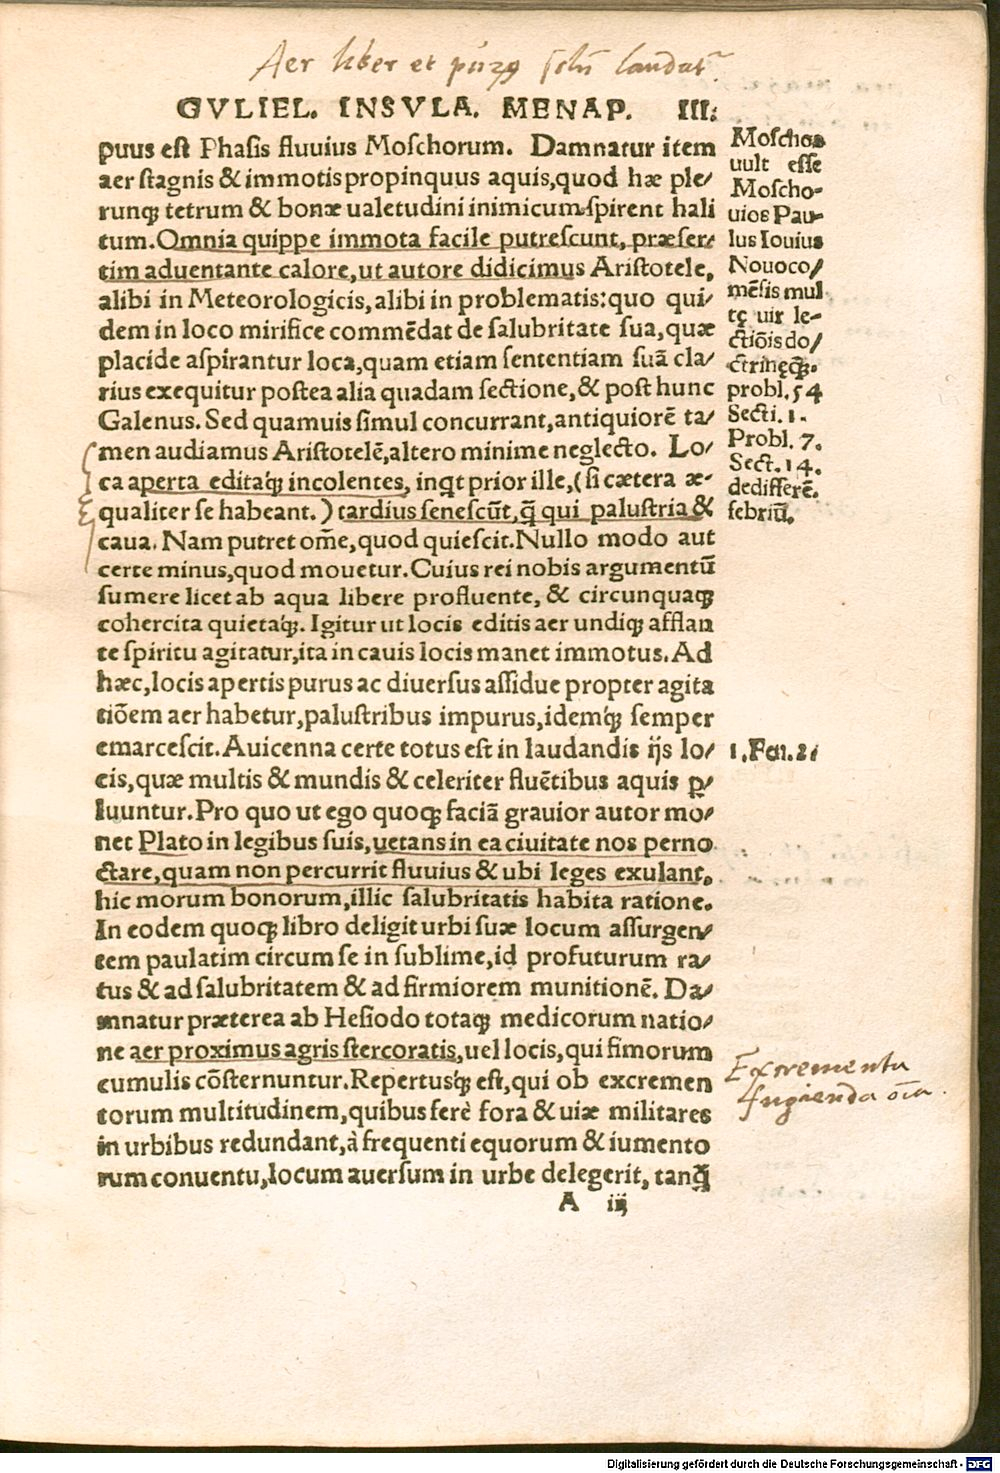 Aer liber et purꝰ laudat
GVLIEL. INSVLA. MENAP. III.
puus est Phasis fluuius Moschorum. Damnatur item
aer stagnis & immotis propinquus aquis, quod hæ ple/
runq; tetrum & bonæ ualetudini inimicum spirent hali
tum. Omnia quippe immota facile putrescunt, præser/
tim aduentante calore, ut autore didicimus Aristotele,
alibi in Meteorologicis, alibi in problematis: quo qui/
dem in loco mirifice commēdat de salubritate sua, quæ
placide aspirantur loca, quam etiam sententiam suā cla/
rius exequitur postea alia quadam sectione, & post hunc
Galenus. Sed quamuis simul concurrant, antiquiorē ta/
men audiamus Aristotelē, altero minime neglecto. Lo/
ca aperta editaq́; incolentes, inqt prior ille, (si cætera æ-
qualiter se habeant.) tardius senescūt, q̄ qui palustria &
caua. Nam putret om̄e, quod quiescit. Nullo modo aut
certe minus, quod mouetur. Cuius rei nobis argumentū
sumere licet ab aqua libere profluente, & circunquaq;
cohercita quietaq́;. Igitur ut locis editis aer undiq; afflan
te spiritu agitatur, ita in cauis locis manet immotus. Ad
hæc, locis apertis purus ac diuersus assidue propter agita
tiōem aer habetur, palustribus impurus, idemq́; semper
emarcescit. Auicenna certe totus est in laudandis ijs lo/
cis, quæ multis & mundis & celeriter fluētibus aquis ꝑ/
luuntur. Pro quo ut ego quoq; faciā grauior autor mo/
net Plato in legibus suis, uetans in ea ciuitate nos perno
ctare, quam non percurrit fluuius & ubi leges exulant,
hic morum bonorum, illic salubritatis habita ratione.
In eodem quoq; libro deligit urbi suæ locum assurgen/
tem paulatim circum se in sublime, id profuturum ra/
tus & ad salubritatem & ad firmiorem munitionē. Da/
mnatur præterea ab Hesiodo totaq; medicorum natio/
ne aer proximus agris stercoratis, uel locis, qui fimorum
cumulis cōsternuntur. Repertusq́; est, qui ob excremen
torum multitudinem, quibus ferè fora & uiæ militares
in urbibus redundant, à frequenti equorum & iumento
rum conuentu, locum auersum in urbe delegerit, tanq̄
A iij
Moschos
uult esse
Moscho-
uios Pau-
lus Iouius
Nouoco/
mēsis mul
tę uir le-
ctiōis do/
ctrinęq́;.
probl. 54
Secti. 1.
Probl. 7.
Sect. 14.
de differē.
febriū.
1. Fen. 2.
Excrementa
fugienda oīa.
Digitalisierung gefördert durch die Deutsche Forschungsgemeinschaft - DFG